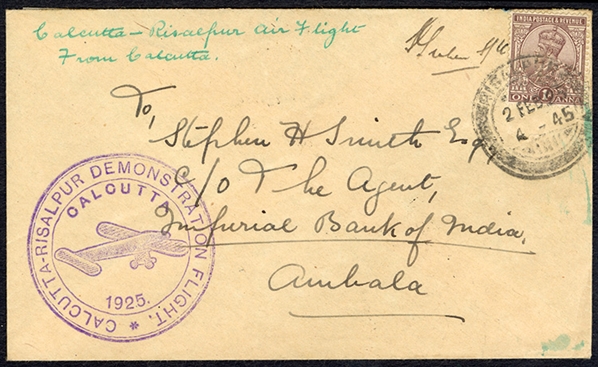 Calcutta - Risalpur Air Flight
From Calcutta.
INDIA POSTAGE & REVENUE
ONE 1A ANNA
2 FEB
4 - 45
To,
Stephen H Smith Esq
C/o The Agent,
Imperial Bank of India,
Ambala
CALCUTTA-RISALPUR DEMONSTRATION FLIGHT. *
CALCUTTA
1925.